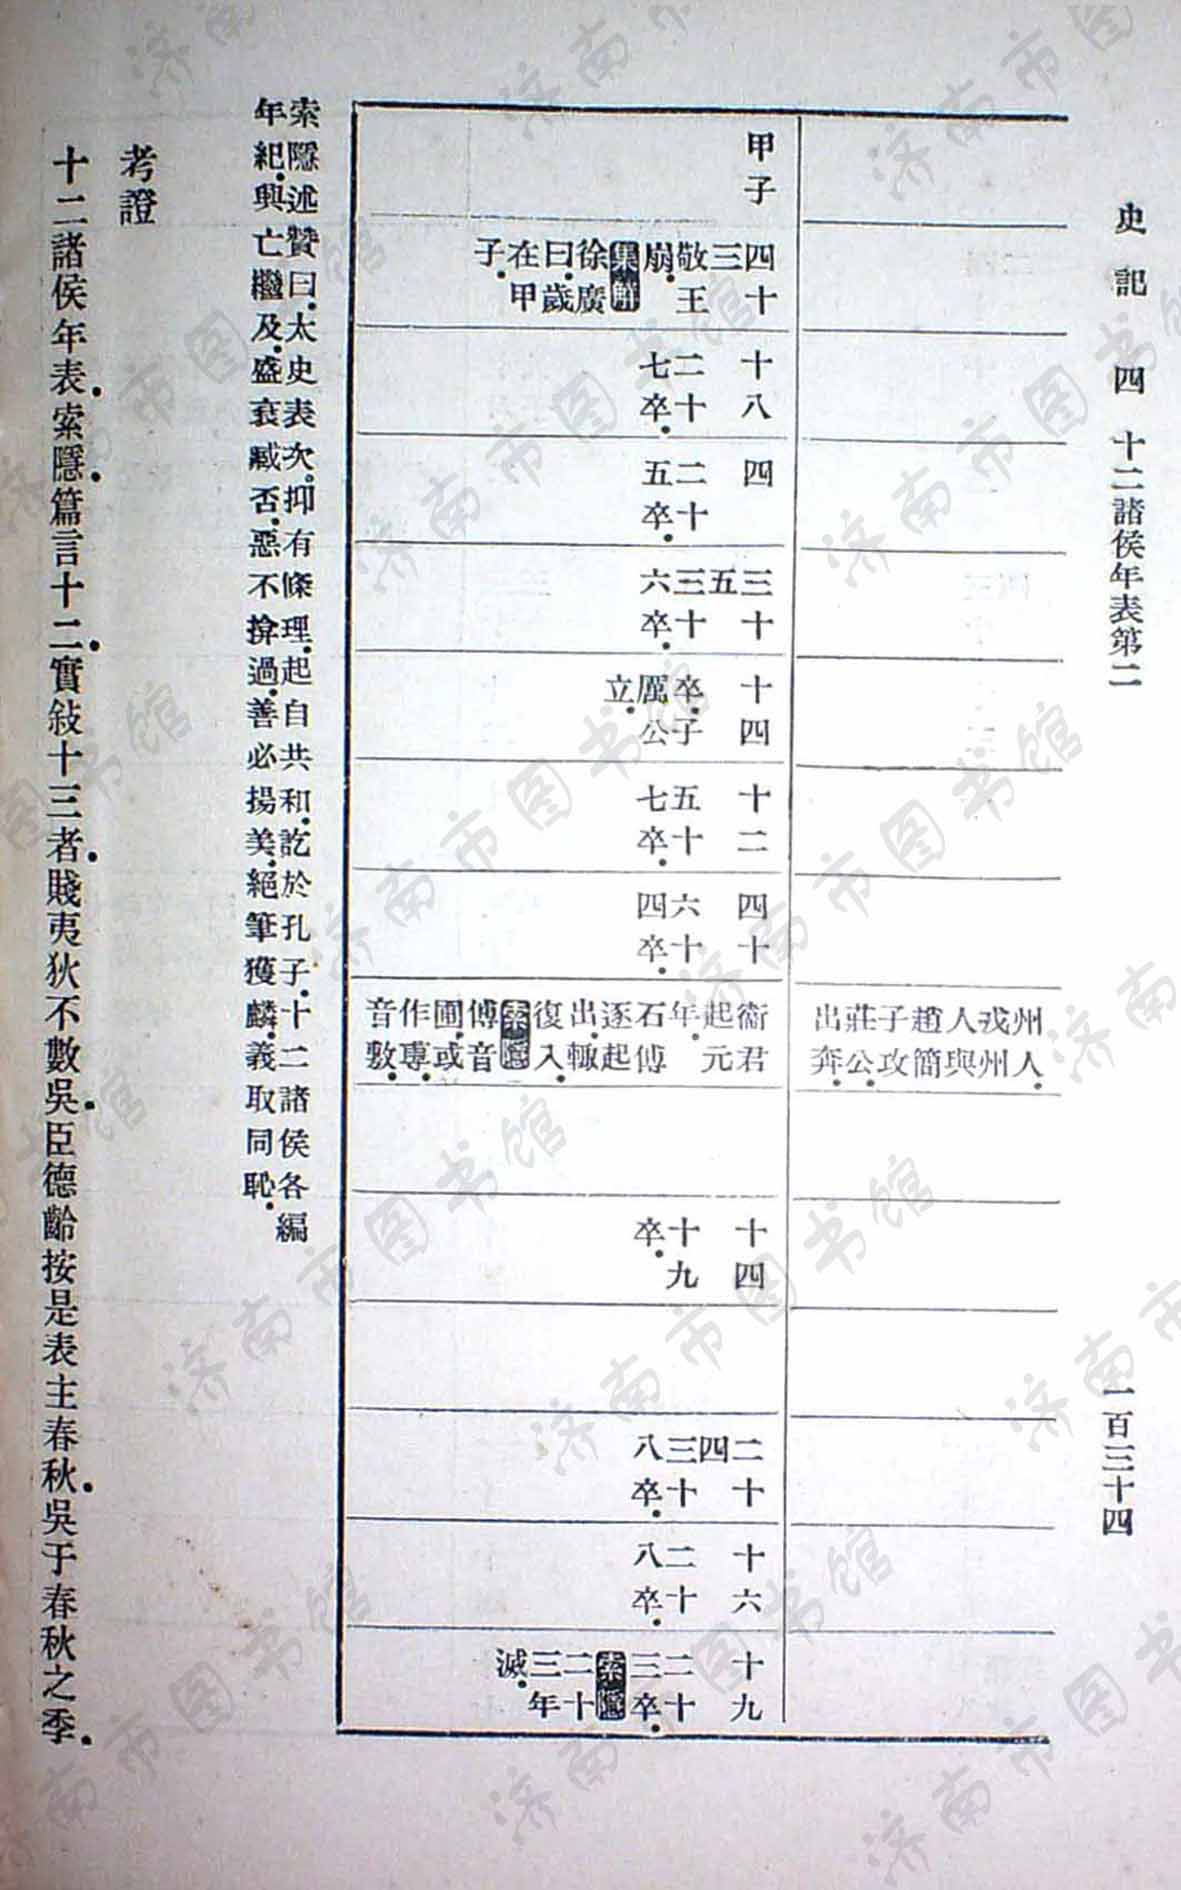 史記 四 十二諸侯年表第二 一百三十四
州人.戎州人與趙簡子攻莊公.出奔.
甲子
四十三 敬王崩.集解徐廣曰.歲在甲子.
十八 二十七卒.
四 二十五卒.
三十五 三十六卒.
十四 卒.子厲公立.
十二 五十七卒.
四十 六十四卒.
衞君起元年.石傅逐起出.輒復入.索隱傅音圃.或作專.音敷.
十四 十九卒.
二十四 三十八卒.
十六 二十八卒.
十九 二十三卒.索隱二十三年滅.
索隱述贊曰.太史表次.抑有條理.起自共和.訖於孔子.十二諸侯各編
年紀.興亡繼及.盛衰臧否.惡不揜過.善必揚美.絕筆獲麟.義取同恥.
考證
十二諸侯年表.索隱.篇言十二.實敍十三者.賤夷狄不數吳.臣德齡按是表主春秋.吳于春秋之季.
济南市图书馆